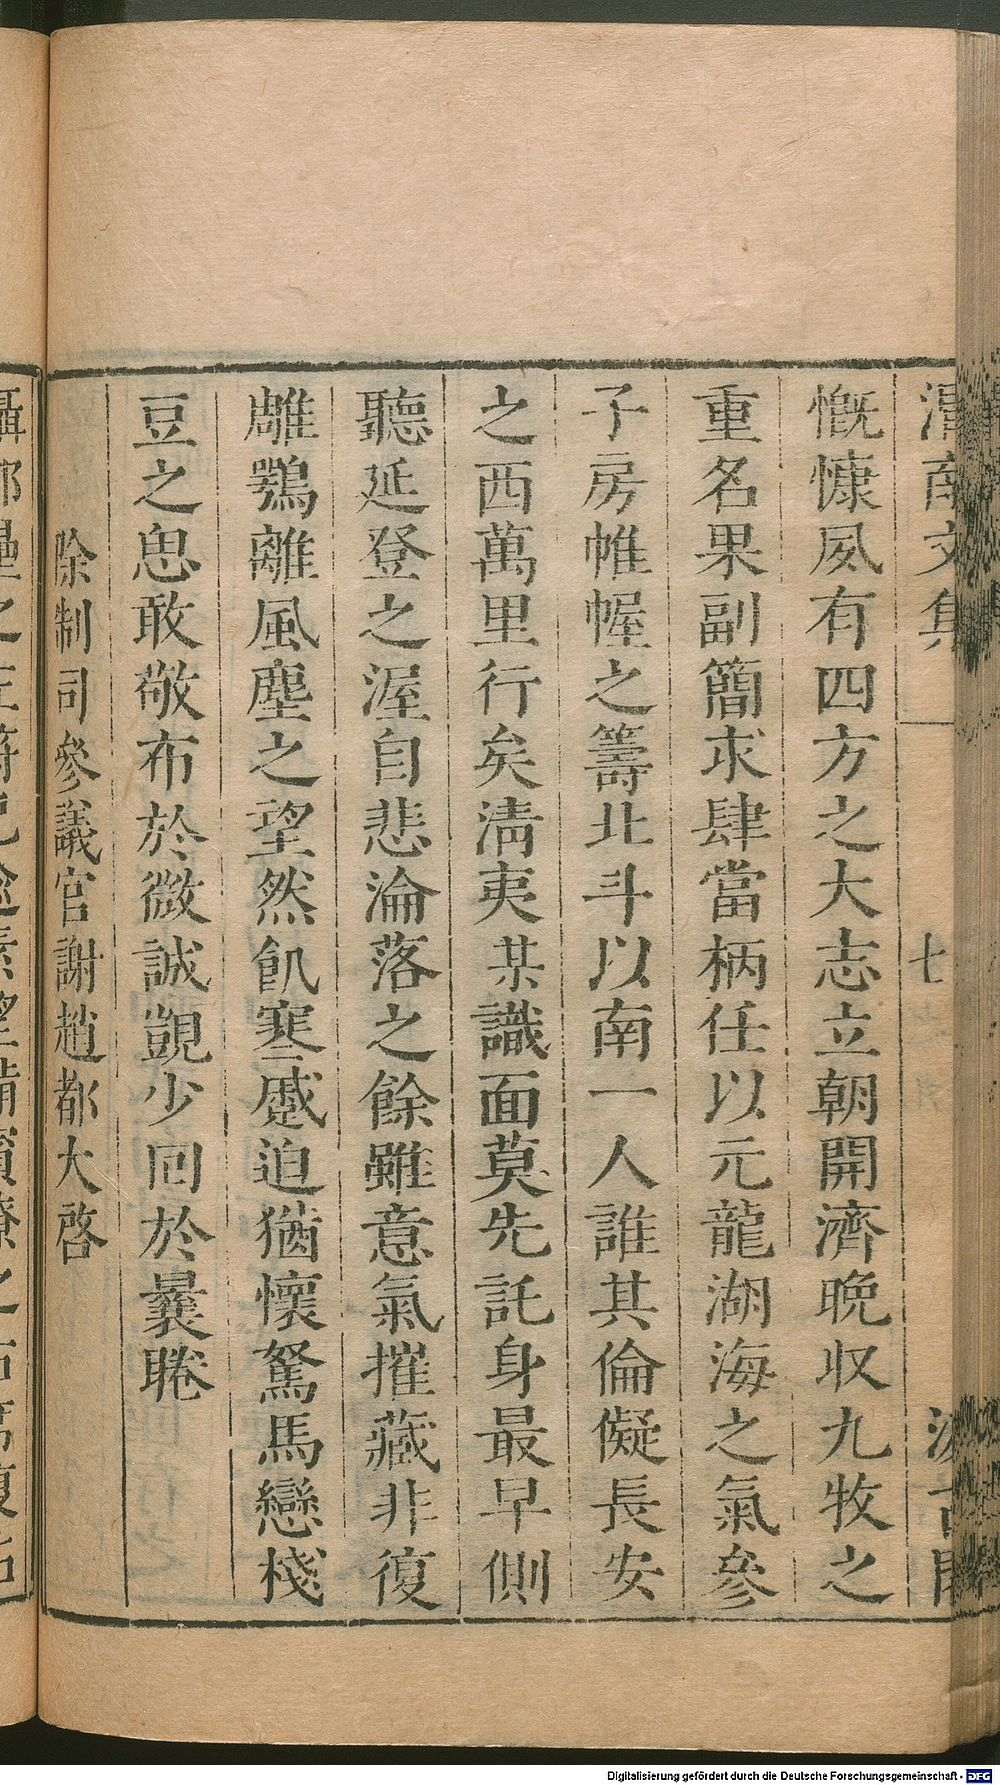 渭南文集 七 汲古閣
慨慷夙有四方之大志立朝開濟晚収九牧之
重名果副簡求肆當柄任以元龍湖海之氣參
子房帷幄之籌北斗以南一人誰其倫儗長安
之西萬里行矣淸夷某識面莫先託身最早側
聽延登之渥自悲淪落之餘雖意氣摧藏非復
鵰鶚離風塵之望然飢寒蹙迫猶懷駑馬戀棧
豆之思敢敬布於微誠覬少回於曩睠
除制司參議官謝趙都大啓
Digitalisierung gefördert durch die Deutsche Forschungsgemeinschaft - DFG